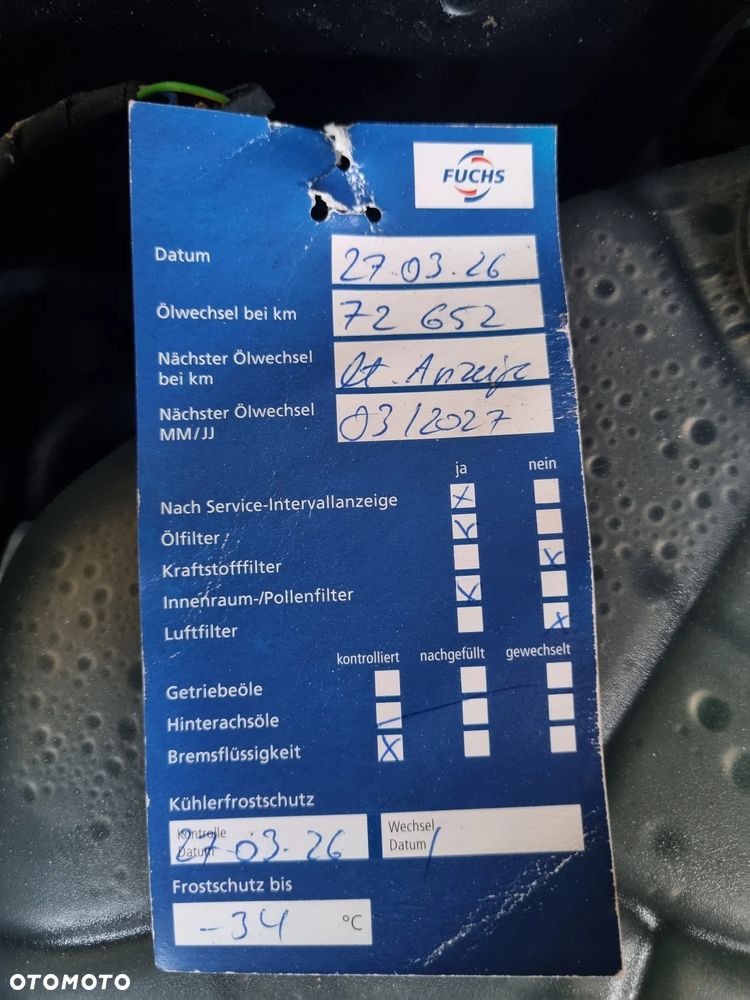 FUCHS
Datum 27.03.26
Ölwechsel bei km 72 652
Nächster Ölwechsel
bei km lt. Anzeige
Nächster Ölwechsel
MM/JJ 03/2027
ja nein
Nach Service-Intervallanzeige x
Ölfilter x
Kraftstofffilter x
Innenraum-/Pollenfilter x
Luftfilter x
kontrolliert nachgefüllt gewechselt
Getriebeöle
Hinterachsöle
Bremsflüssigkeit x
Kühlerfrostschutz
Kontrolle Wechsel
Datum 27.03.26 Datum /
Frostschutz bis
-34 °C
OTOMOTO